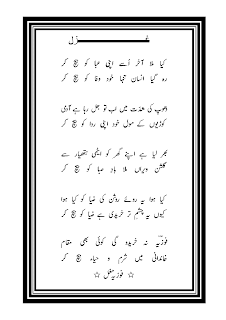 غزل
کیا ملا آخر اُسے اپنی عبا کو بیچ کر
رہ گیا انسان تنہا خود وفا کو بیچ کر
دھوپ کی شدت میں اب تو جل رہا ہے آدمی
کوڑیوں کے مول خود اپنی ردا کو بیچ کر
بھر لیا ہے اپنے گھر کو ایٹمی ہتھیار سے
گلشن ویراں ملا بادِ صبا کو بیچ کر
کیا ہوا یہ روئے روشن کی ضیا کو کیا ہوا
کیوں یہ چشم تر خریدی ہے ضیا کو بیچ کر
فوزیہ نہ خریدو گی کوئی بھی مقام
خاندانی میں شرم و حیاء بیچ کر
☆ فوزیہ مغل ☆